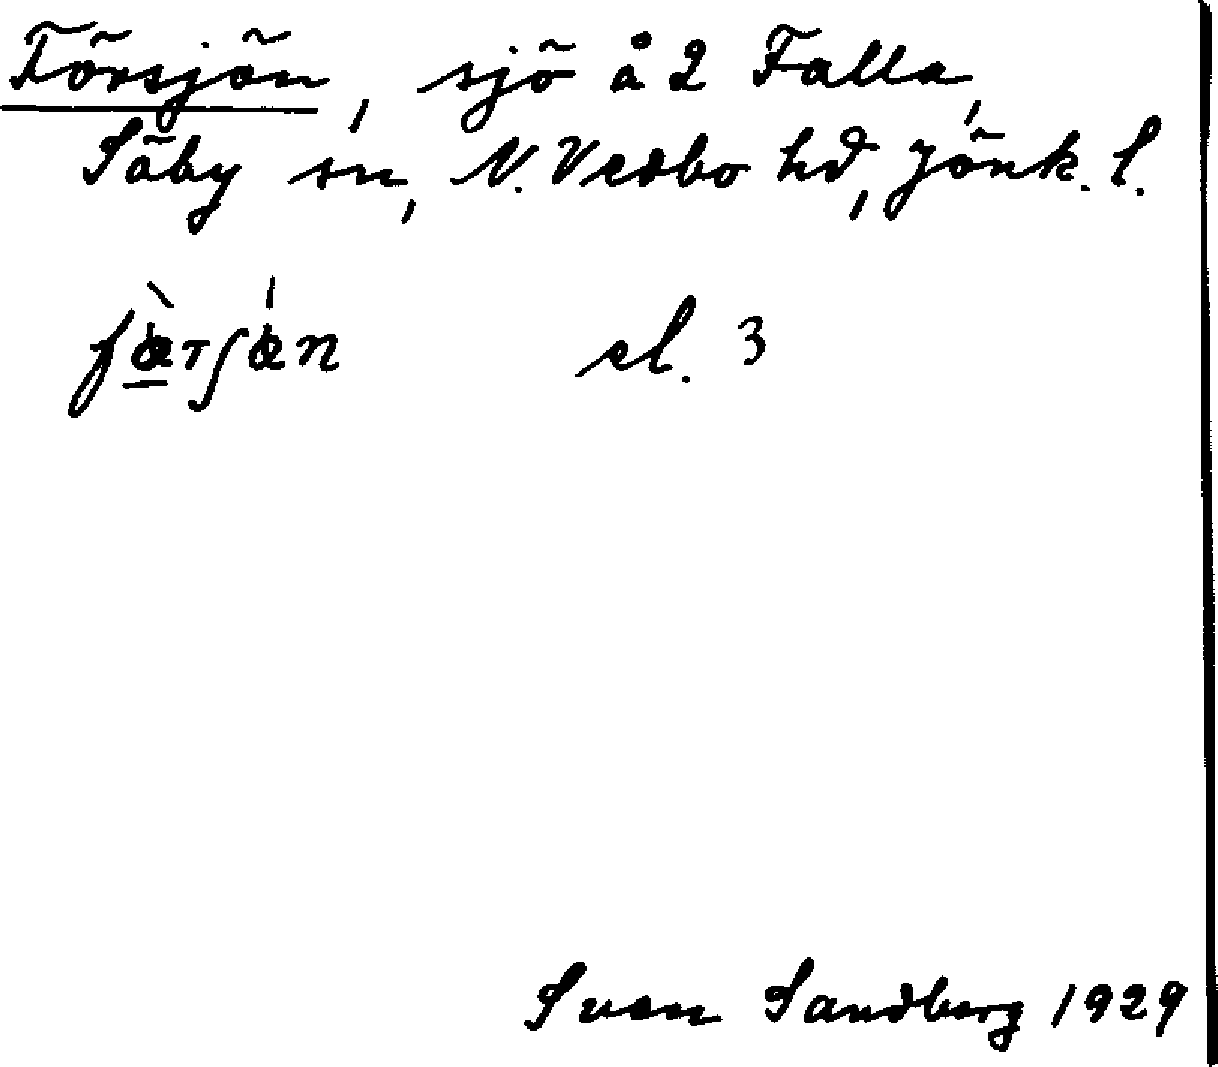 Försjön, sjö å 2 Falla,
Säby sn, N. Vedbo hd, Jönk. l.
el. 3
Sven Sandberg 1929